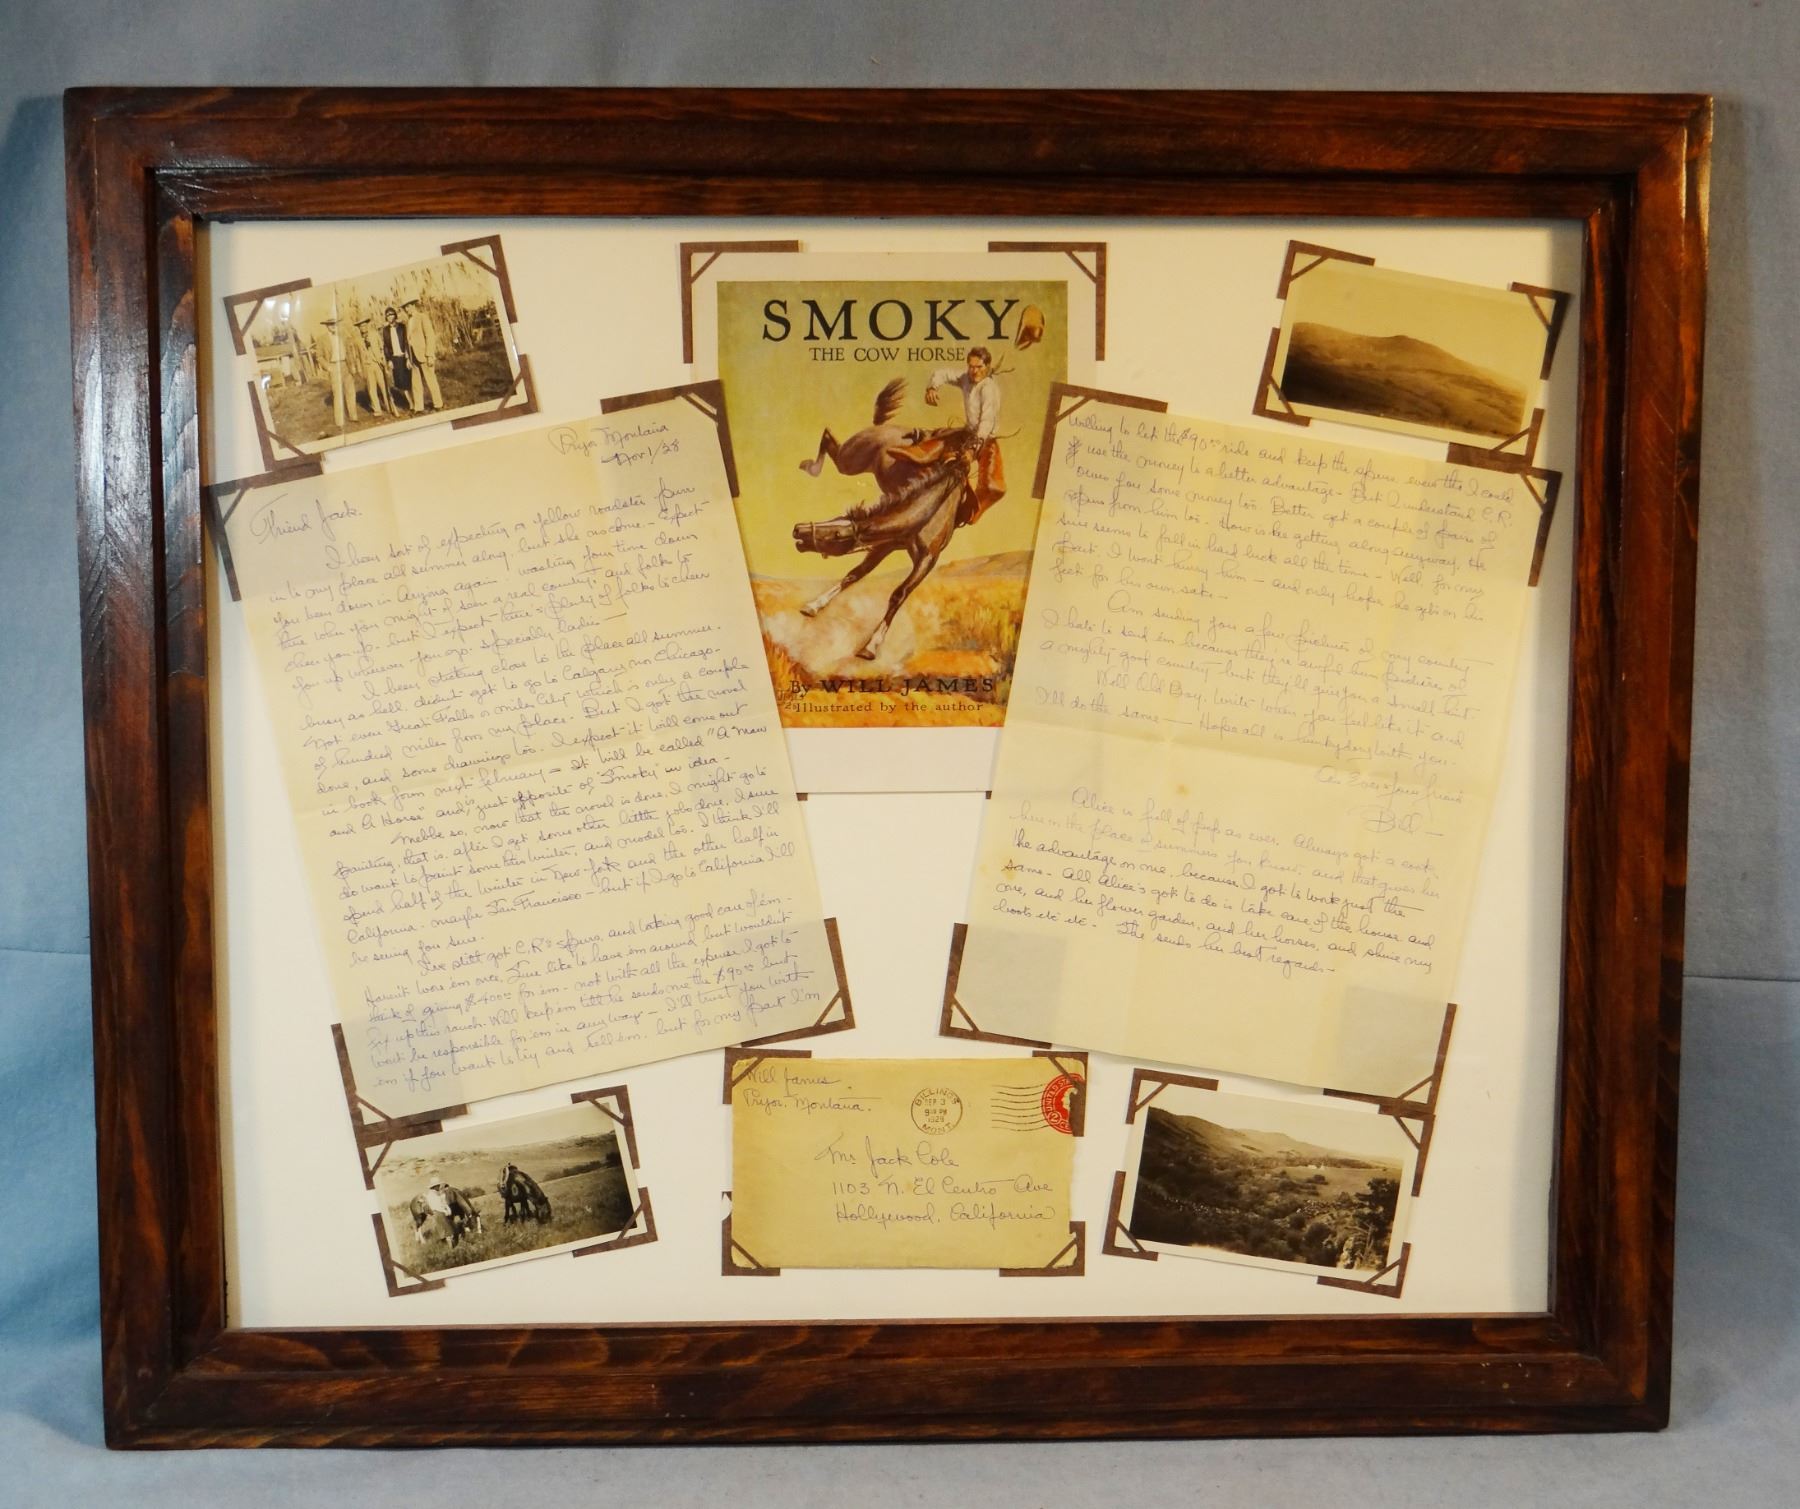 SMOKY
THE COW HORSE
By WILL JAMES
Illustrated by the author
Pryor Montana
Nov 1/28
Friend Jack.
I been sort of expecting a yellow roadster purr
in to my place all summer along, but she no come - Expect
you been down in Aryona again. wasting your time down
there when you might of seen a real country, and folks to
cheer you up. but I expect there's plenty of folks to cheer
you up wherever you go. specially ladies -
I been sticking close to the place all summer.
busy as hell. didnt get to go to Calgary nor Chicago.
Not even Great Falls or Miles City which is only a couple
of hundred miles from my place. But I got the novel
done, and some drawings too. I expect it will come out
in book form next february = It will be called "A Man
and A Horse" and is just opposite of "Smoky" in idea -
Mebbe so, now that the novel is done, I might go to
painting, that is, after I get some other little jobs done. I sure
do want to paint some this winter, and model too. I think I'll
spend half of the winter in New-York and the other half in
California - maybe San Francisco - but if I go to California I'll
be seeing you sure.
I've still got C.R's spurs, and taking good care of em -
Haven't wore em once. Sure like to have em around but wouldn't
think of giving $400⁰⁰ for em - not with all the expense I got to
fix up this ranch. Will keep em till he sends me the $90⁰⁰ but
wont be responsible for em in any way - I'll trust you with
em if you want to try and sell em. but for my part I'm
willing to let the $90⁰⁰ ride and keep the spurs, even tho I could
use the money to a better advantage - But I understand C.R.
owes you some money too. Better get a couple of pairs of
spurs from him too. How is he getting along anyway, He
sure seems to fall in hard luck all the time - Well, for my
part, I wont hurry him - and only hope he gets on his
feet for his own sake -
Am sending you a few pictures of my country
I hate to send em because they're awful bum pictures of
a mighty good country but they'll give you a small hint.
Well Old Boy. Write when you feel like it and
I'll do the same - Hope all is hunkydory with you -
As Ever Your friend
Bill -
Alice is full of pep as ever. Always got a cook
here on the place summers you know, and that gives her
the advantage on me, because I got to work just the
same - All Alice's got to do is take care of the house and
me, and her flower garden, and her horses, and shine my
boots etc etc - She sends her best regards -
Will James
Pryor, Montana.
BILLINGS
SEP 3
9 PM
1929
MONT.
UNITED STATES
2
Mr Jack Cole
1103 N. El Centro Ave
Hollywood, California